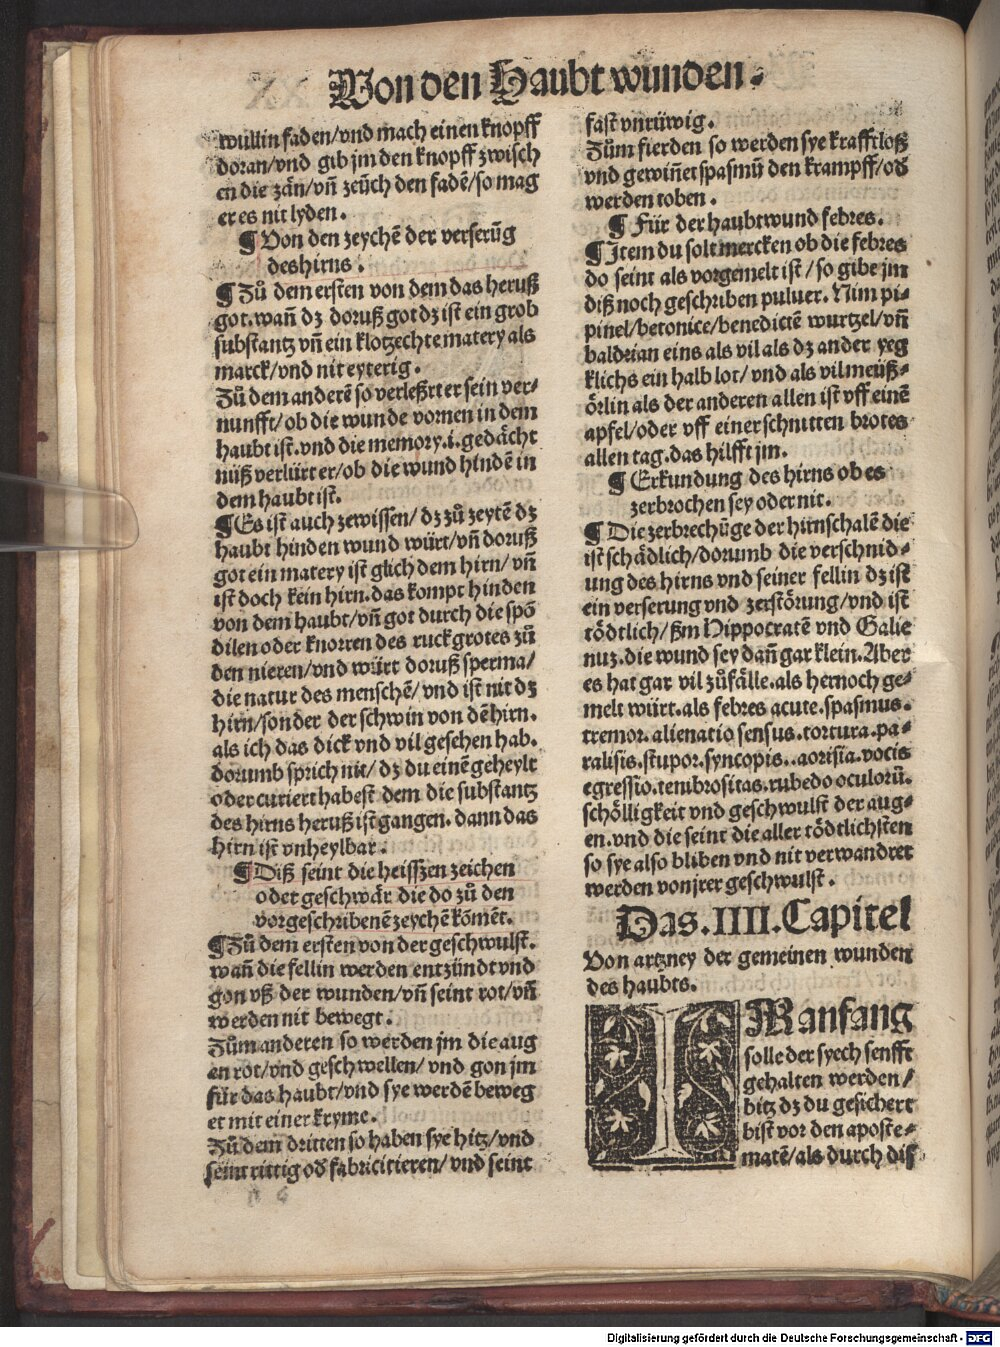 Von den Haubt wunden.
wullin faden/vnd mach einen knopff
doran/vnd gib jm den knopff zwisch
en die zän/vñ zeüch den fadē/so mag
er es nit lyden.
¶ Von den zeychē der verserũg
des hirns.
¶ Zů dem ersten von dem das heruß
got.wañ dz doruß got dz ist ein grob
substantz vñ ein klotzechte matery als
marck/vnd nit eyterig.
Zů dem anderē so verleßrt er sein ver-
nunfft/ob die wunde vornen in dem
haubt ist.vnd die memory.i.gedächt
nüß verlürt er/ob die wund hindē in
dem haubt ist.
¶ Es ist auch zewissen/dz zů zeytē dz
haubt hinden wund würt/vñ doruß
got ein matery ist glich dem hirn/vñ
ist doch kein hirn.das kompt hinden
von dem haubt/vñ got durch die spō
dilen oder knorren des ruckgrotes zů
den nieren/vnd würt doruß sperma/
die natur des menschē/vnd ist nit dz
hirn/sonder der schwin von dē hirn.
als ich das dick vnd vil gesehen hab.
dorumb sprich nit/dz du einē geheylt
oder curiert habest dem die substantz
des hirns heruß ist gangen.dann das
hirn ist vnheylbar.
¶ Diß seint die heisszen zeichen
oder geschwär die do zů den
vorgeschribenē zeychē kōmēt.
¶ Zů dem ersten von der geschwulst.
wañ die fellin werden entzündt vnd
gon vß der wunden/vñ seint rot/vñ
werden nit bewegt.
Zům anderen so werden jm die aug
en rot/vnd geschwellen/vnd gon jm
für das haubt/vnd sye werdē beweg
et mit einer kryme.
Zů dem dritten so haben sye hitz/vnd
seint rittig od fabricitieren/vnd seint
fast vnrüwig.
Züm fierden so werden sye krafftloß
vnd gewiñet spasmū den krampff/od
werden toben.
¶ Für der haubtwund febres.
¶ Item du solt mercken ob die febres
do seint als vorgemelt ist/so gibe jm
diß noch geschriben puluer.Nim pi-
pinel/betonice/benedictē wurtzel/vñ
baldrian eins als vil als dz ander yeg
klichs ein halb lot/vnd als vil meüß-
örlin als der anderen allen ist vff einē
apfel/oder vff einer schnitten brotes
allen tag.das hilfft jm.
¶ Erkundung des hirns ob es
zerbrochen sey oder nit.
¶ Die zerbrechüge der hirnschalē die
ist schädlich/dorumb die verschnid-
ung des hirns vnd seiner fellin dz ist
ein verserung vnd zerstörung/vnd ist
tödtlich/ßm Hippocratē vnd Galie
nuz.die wund sey dañ gar klein.Aber
es hat gar vil zůfälle.als hernoch ge-
melt würt.als febres acute.spasmus.
tremor.alienatio sensus.tortura.pa-
ralisis.stupor.syncopis..aorisia.vocis
egressio.tenbrositas.rubedo oculorū.
schölligkeit vnd geschwulst der aug-
en.vnd die seint die aller tödtlichsten
so sye also bliben vnd nit verwandret
werden von jrer geschwulst.
Das.IIII.Capitel
Von artzney der gemeinen wunden
des haubts.
IM anfang
solle der syech senfft
gehalten werden/
bitz dz du gesichert
bist vor den aposte-
matē/als durch dis
Digitalisierung gefördert durch die Deutsche Forschungsgemeinschaft - DFG